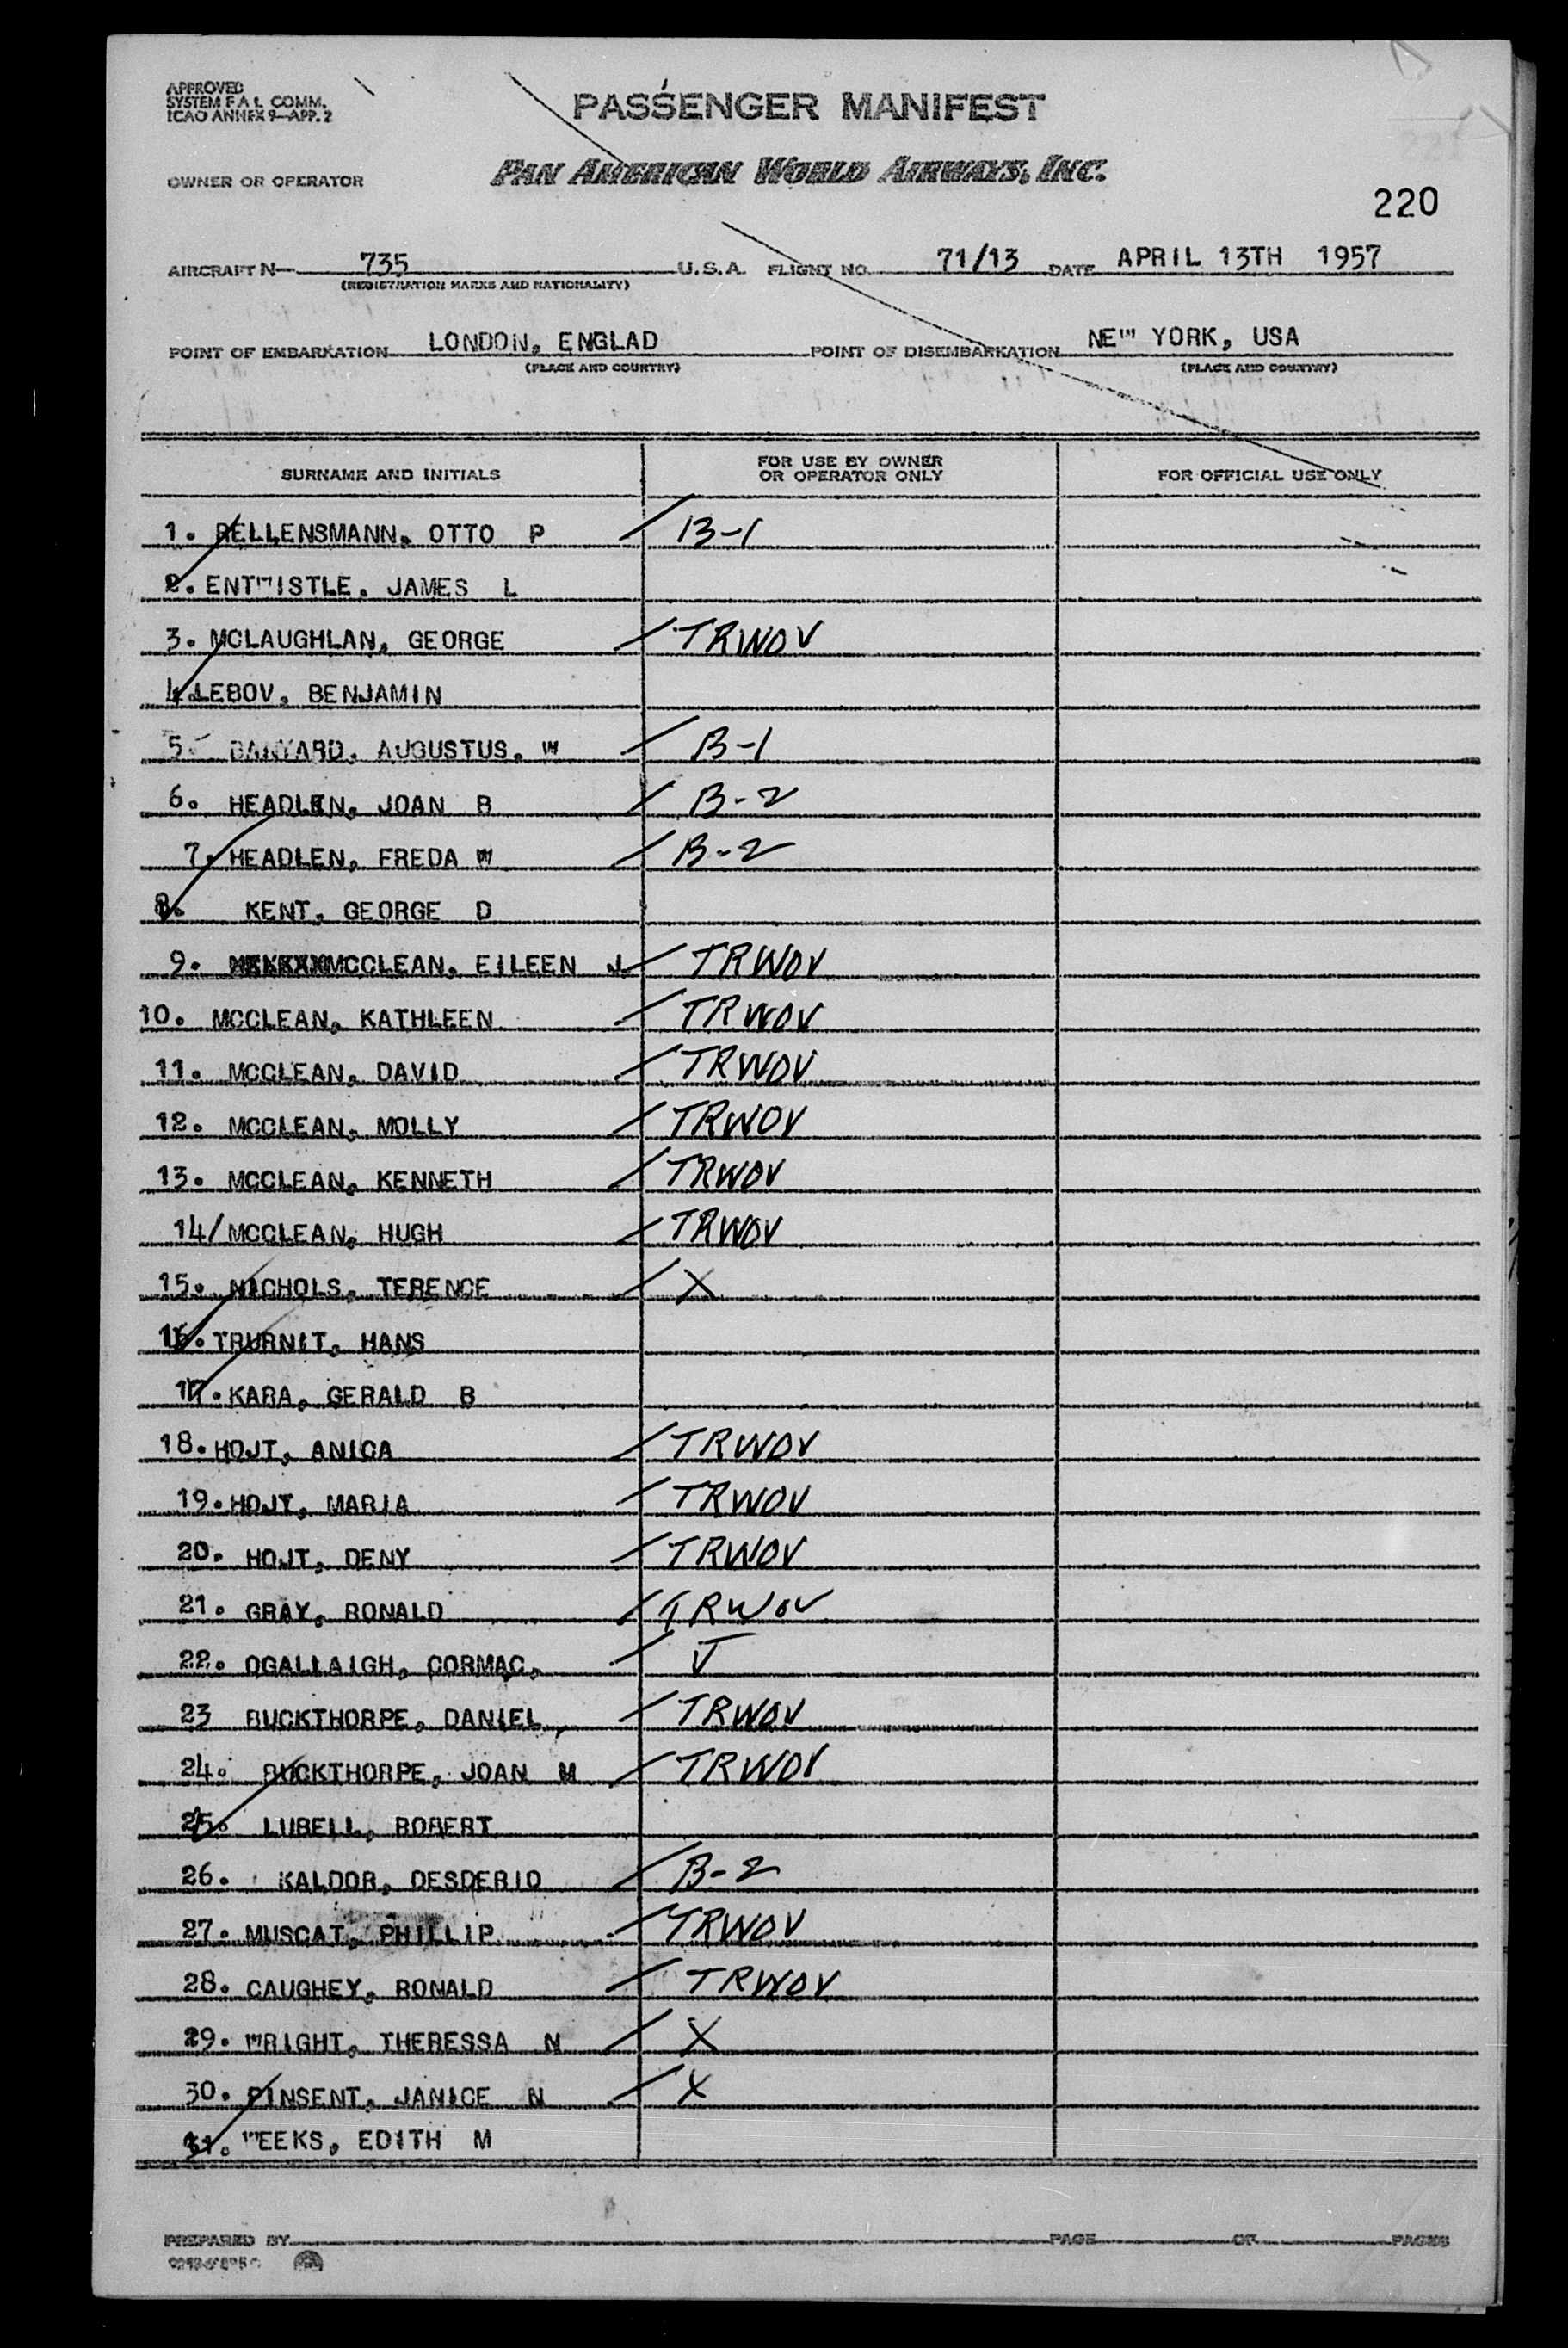 APPROVED
SYSTEM F A L COMM.
ICAO ANNEX 9—APP. 2
PASSENGER MANIFEST
OWNER OR OPERATOR
PAN AMERICAN WORLD AIRWAYS, INC.
220
AIRCRAFT N— 735 U.S.A. FLIGHT NO. 71/13 DATE APRIL 13TH 1957
(REGISTRATION MARKS AND NATIONALITY)
POINT OF EMBARKATION LONDON, ENGLAD POINT OF DISEMBARKATION NEW YORK, USA
(PLACE AND COUNTRY) (PLACE AND COUNTRY)
SURNAME AND INITIALS FOR USE BY OWNER OR OPERATOR ONLY FOR OFFICIAL USE ONLY
1. RELLENSMANN, OTTO P B-1
2. ENTWISTLE, JAMES L
3. MCLAUGHLAN, GEORGE TRWOV
4. LEBOV, BENJAMIN
5. BANYARD, AUGUSTUS. W B-1
6. HEADLEN, JOAN B B-2
7. HEADLEN, FREDA W B-2
8. KENT, GEORGE D
9. MCCLEAN, EILEEN J. TRWOV
10. MCCLEAN, KATHLEEN TRWOV
11. MCCLEAN, DAVID TRWOV
12. MCCLEAN, MOLLY TRWOV
13. MCCLEAN, KENNETH TRWOV
14/ MCCLEAN, HUGH TRWOV
15. NICHOLS, TERENCE X
16. TRURNIT, HANS
17. KARA, GERALD B
18. HOJT, ANICA TRWOV
19. HOJT, MARIA TRWOV
20. HOJT, DENY TRWOV
21. GRAY, RONALD TRWOV
22. OGALLAIGH, CORMAC,
23 BUCKTHORPE, DANIEL, TRWOV
24. BUCKTHORPE, JOAN M TRWOV
25. LUBELL, ROBERT
26. KALDOR, DESDERIO B-2
27. MUSCAT, PHILLIP TRWOV
28. CAUGHEY, RONALD TRWOV
29. WRIGHT, THERESSA N X
30. PINSENT, JANICE N X
31. WEEKS, EDITH M
PREPARED BY PAGE OF PAGES